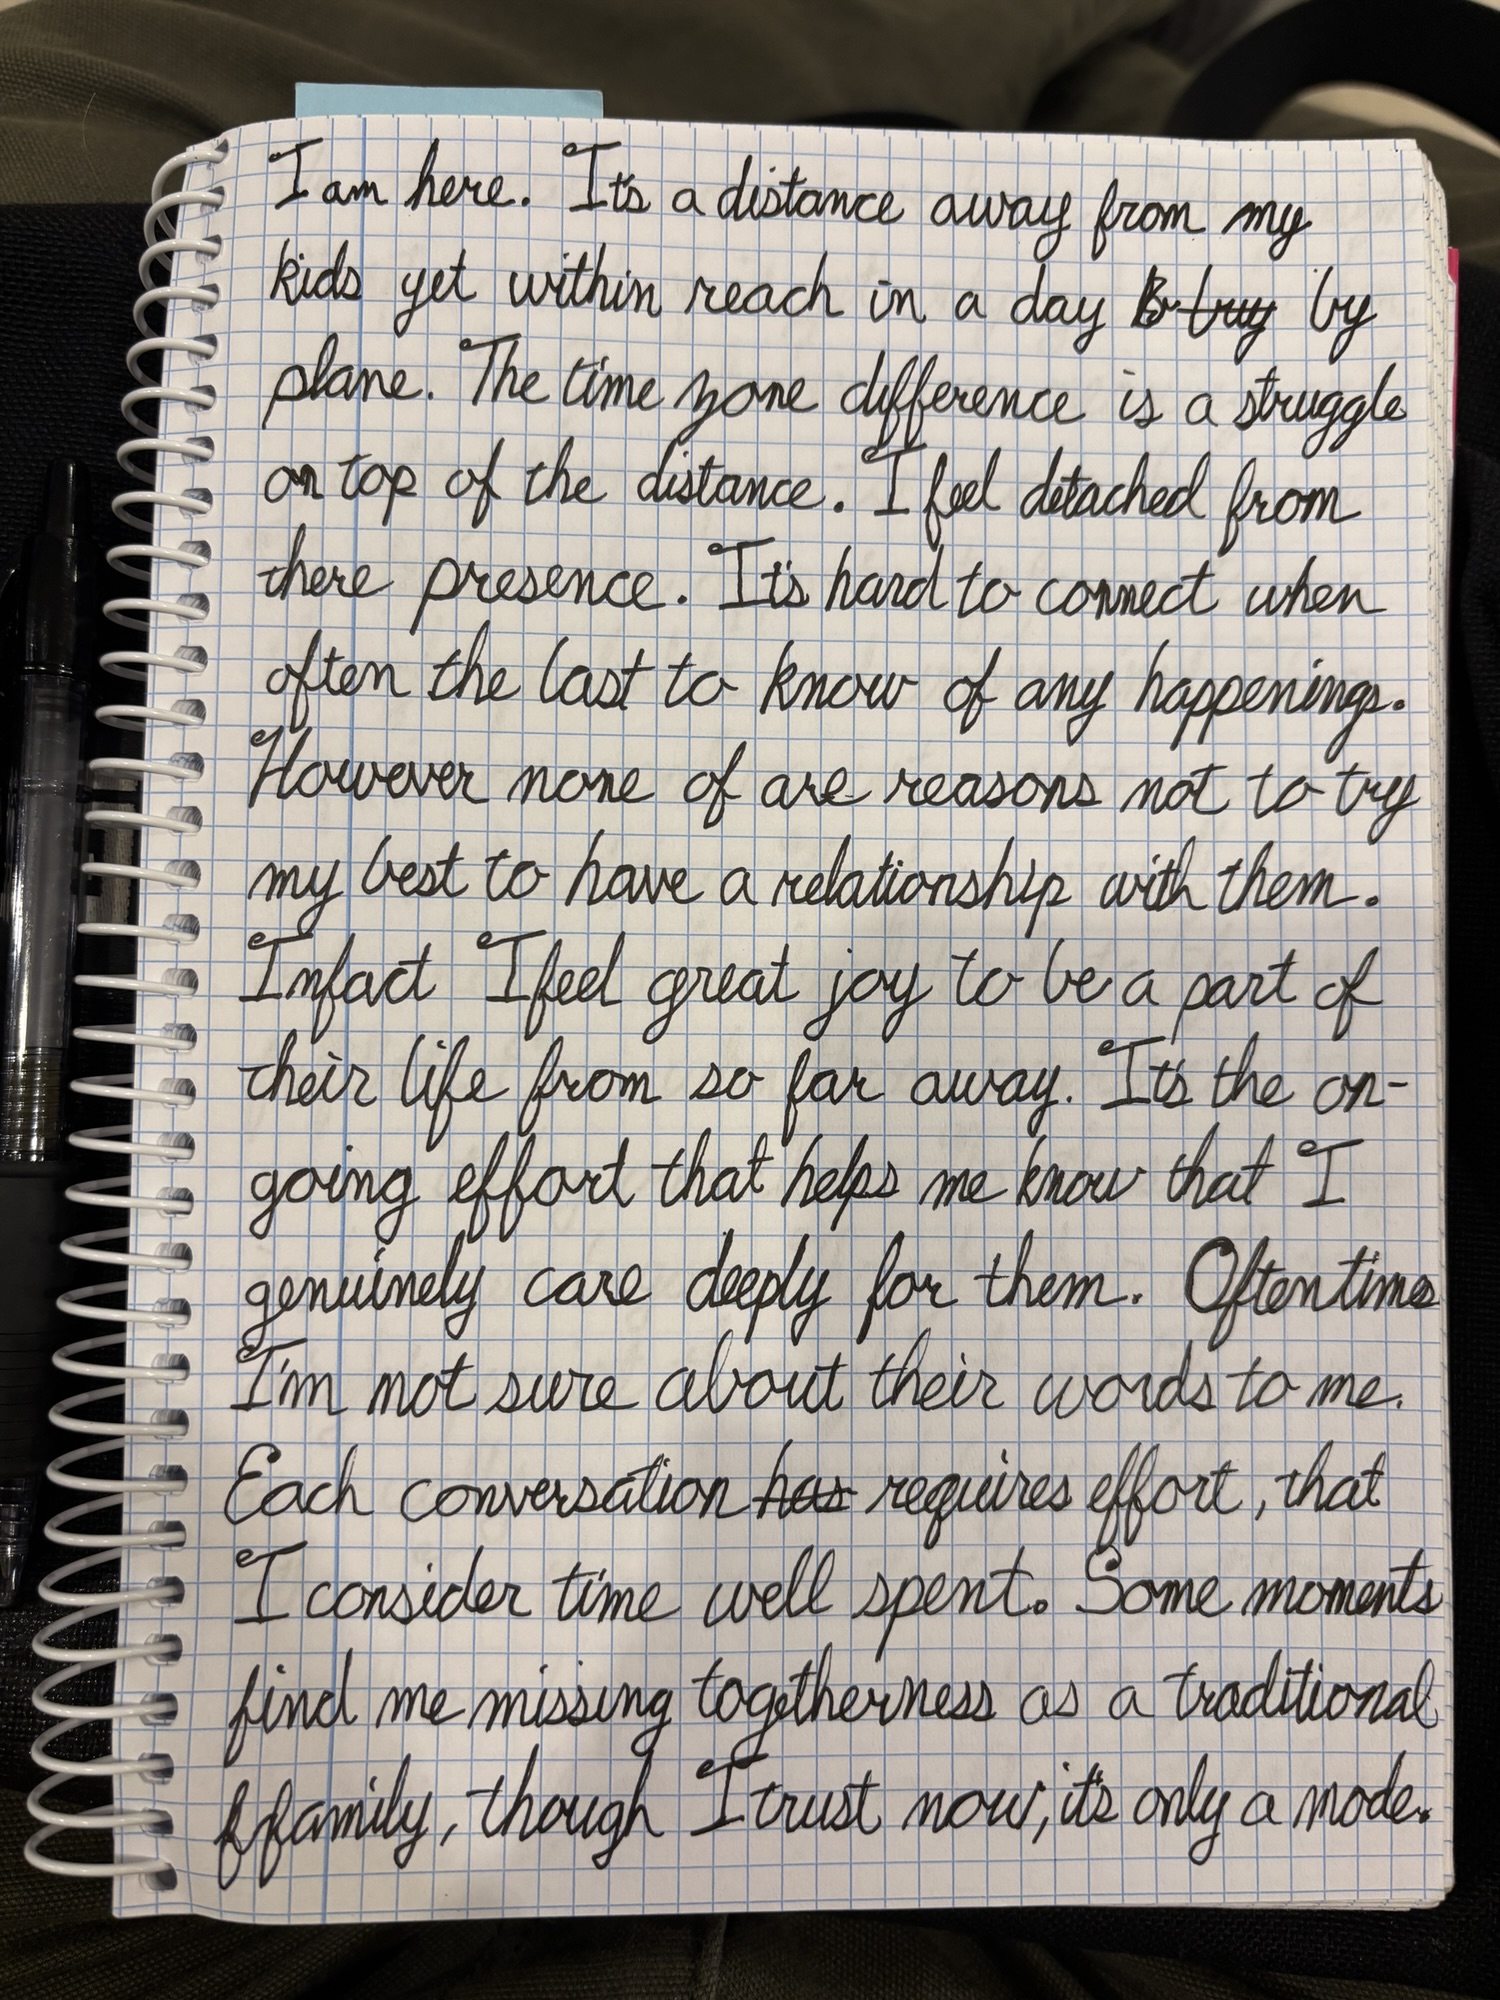 I am here. It's a distance away from my
kids yet within reach in a day by
plane. The time zone difference is a struggle
on top of the distance. I feel detached from
there presence. It's hard to connect when
often the last to know of any happenings.
However none of are reasons not to try
my best to have a relationship with them.
Infact I feel great joy to be a part of
their life from so far away. It's the on-
going effort that helps me know that I
genuinely care deeply for them. Oftentimes
I'm not sure about their words to me.
Each conversation has requires effort, that
I consider time well spent. Some moments
find me missing togetherness as a traditional
f family, though I trust now, it's only a mode.